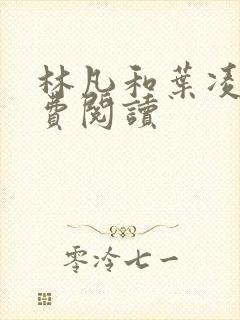 林凡和葉凌
費閱讀
零泠七一